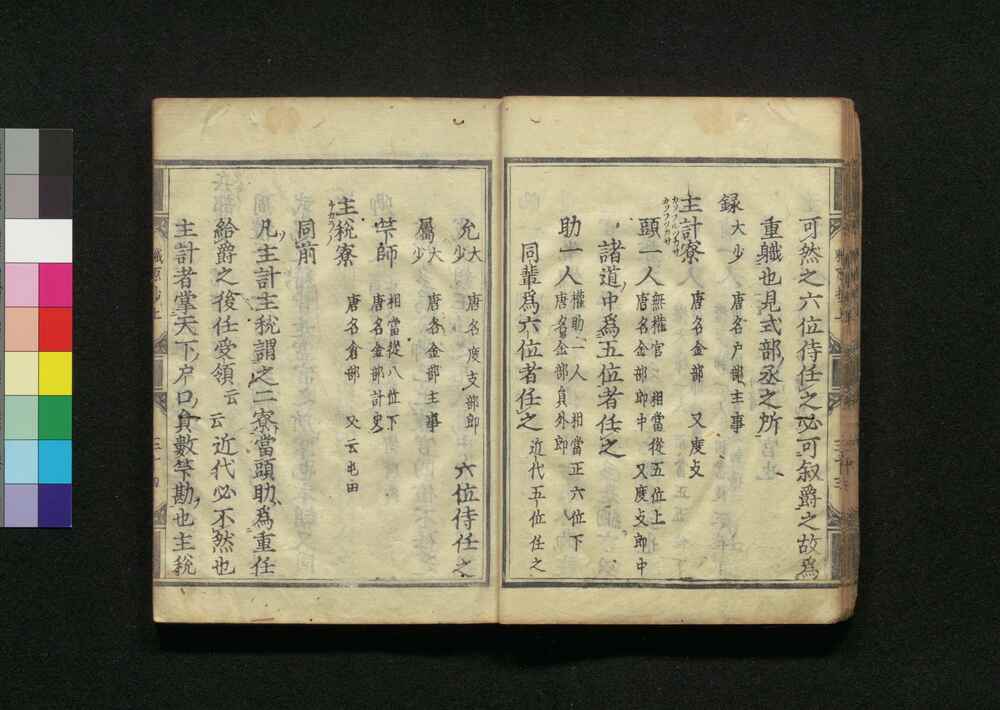 可然之六位侍任之必可叙爵之故爲
重軄也見式部丞之所
録 大少 唐名户部主事
主計寮 唐名金部 又度支
カソフルツカサ
カソフリカサ
頭一人 無權官 相當從五位上
唐名金部郎中 又度支郎中
諸道中爲五位者任之
助一人 權助一人 相當正六位下
唐名金部員外郎
同輩爲六位者任之 近代五位任之
允 大少 唐名度支部郎 六位侍任之
屬 大少 唐名金部主事
筭師 相當從八位下
唐名金部計史
主税寮 唐名倉部 又云屯田
チカラノ
同前
凡主計主税謂之二寮當頭助爲重任
給爵之後任受領云云近代必不然也
主計者掌天下户口負數筭勘也主税